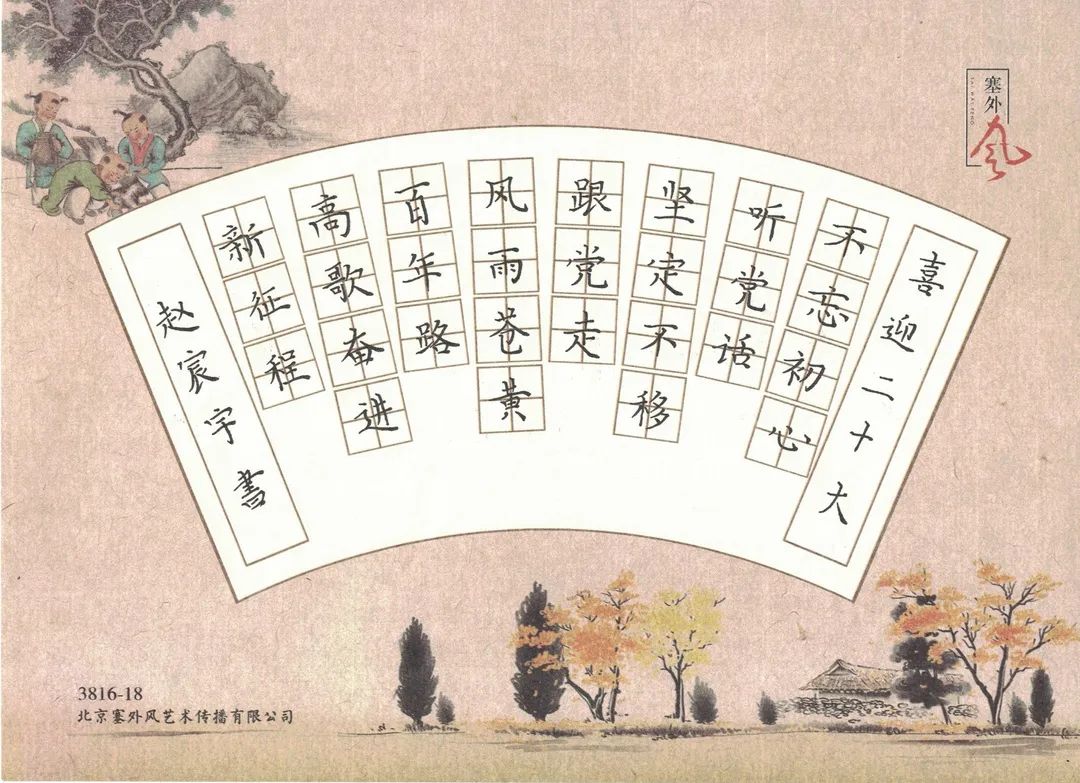 喜迎二十大
不忘初心
听党话
坚定不移
跟党走
风雨苍黄
百年路
高歌奋进
新征程
赵宸宇书
塞外
风
3816-18
北京塞外风艺术传播有限公司